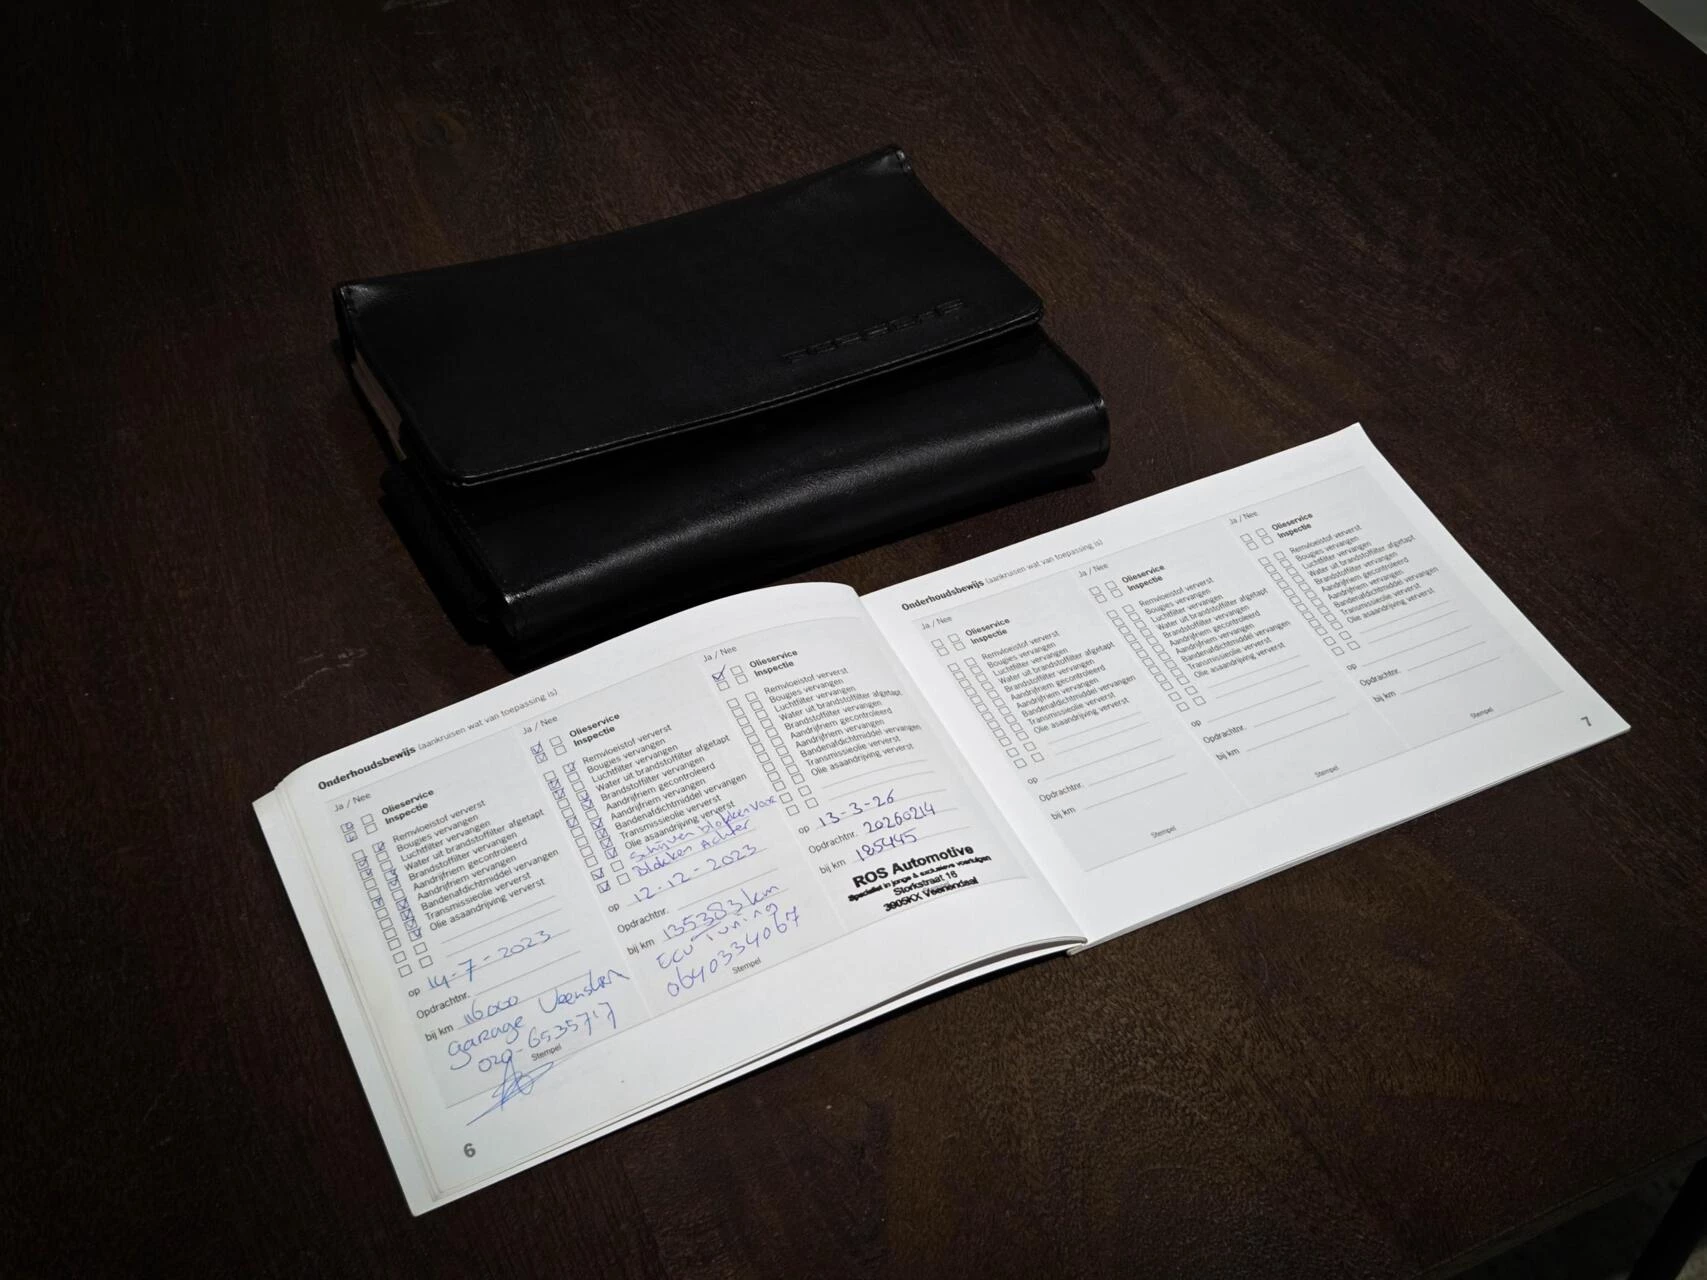 PORSCHE
Onderhoudsbewijs (aankruisen wat van toepassing is)
Ja / Nee
Olieservice
Inspectie
Remvloeistof ververst
Bougies vervangen
Luchtfilter vervangen
Water uit brandstoffilter afgetapt
Brandstoffilter vervangen
Aandrijfriem gecontroleerd
Aandrijfriem vervangen
Bandenafdichtmiddel vervangen
Transmissieolie ververst
Olie asaandrijving ververst
op 14-7-2023
Opdrachtnr.
bij km 116000
Garage
020-6535717
Stempel
Ja / Nee
Olieservice
Inspectie
Remvloeistof ververst
Bougies vervangen
Luchtfilter vervangen
Water uit brandstoffilter afgetapt
Brandstoffilter vervangen
Aandrijfriem gecontroleerd
Aandrijfriem vervangen
Bandenafdichtmiddel vervangen
Transmissieolie ververst
Olie asaandrijving ververst
Schijven blokken voor
Blokken Achter
op 12-12-2023
Opdrachtnr.
bij km 135383km
ECU Tuning
0640334067
Stempel
Ja / Nee
Olieservice
Inspectie
Remvloeistof ververst
Bougies vervangen
Luchtfilter vervangen
Water uit brandstoffilter afgetapt
Brandstoffilter vervangen
Aandrijfriem gecontroleerd
Aandrijfriem vervangen
Bandenafdichtmiddel vervangen
Transmissieolie ververst
Olie asaandrijving ververst
op 13-3-26
Opdrachtnr. 20260214
bij km 185445
ROS Automotive
Specialist in jonge & exclusieve voertuigen
Storkstraat 16
3905KX Veenendaal
6
Onderhoudsbewijs (aankruisen wat van toepassing is)
Ja / Nee
Olieservice
Inspectie
Remvloeistof ververst
Bougies vervangen
Luchtfilter vervangen
Water uit brandstoffilter afgetapt
Brandstoffilter vervangen
Aandrijfriem gecontroleerd
Aandrijfriem vervangen
Bandenafdichtmiddel vervangen
Transmissieolie ververst
Olie asaandrijving ververst
op
Opdrachtnr.
bij km
Stempel
Ja / Nee
Olieservice
Inspectie
Remvloeistof ververst
Bougies vervangen
Luchtfilter vervangen
Water uit brandstoffilter afgetapt
Brandstoffilter vervangen
Aandrijfriem gecontroleerd
Aandrijfriem vervangen
Bandenafdichtmiddel vervangen
Transmissieolie ververst
Olie asaandrijving ververst
op
Opdrachtnr.
bij km
Stempel
Ja / Nee
Olieservice
Inspectie
Remvloeistof ververst
Bougies vervangen
Luchtfilter vervangen
Water uit brandstoffilter afgetapt
Brandstoffilter vervangen
Aandrijfriem gecontroleerd
Aandrijfriem vervangen
Bandenafdichtmiddel vervangen
Transmissieolie ververst
Olie asaandrijving ververst
op
Opdrachtnr.
bij km
Stempel
7